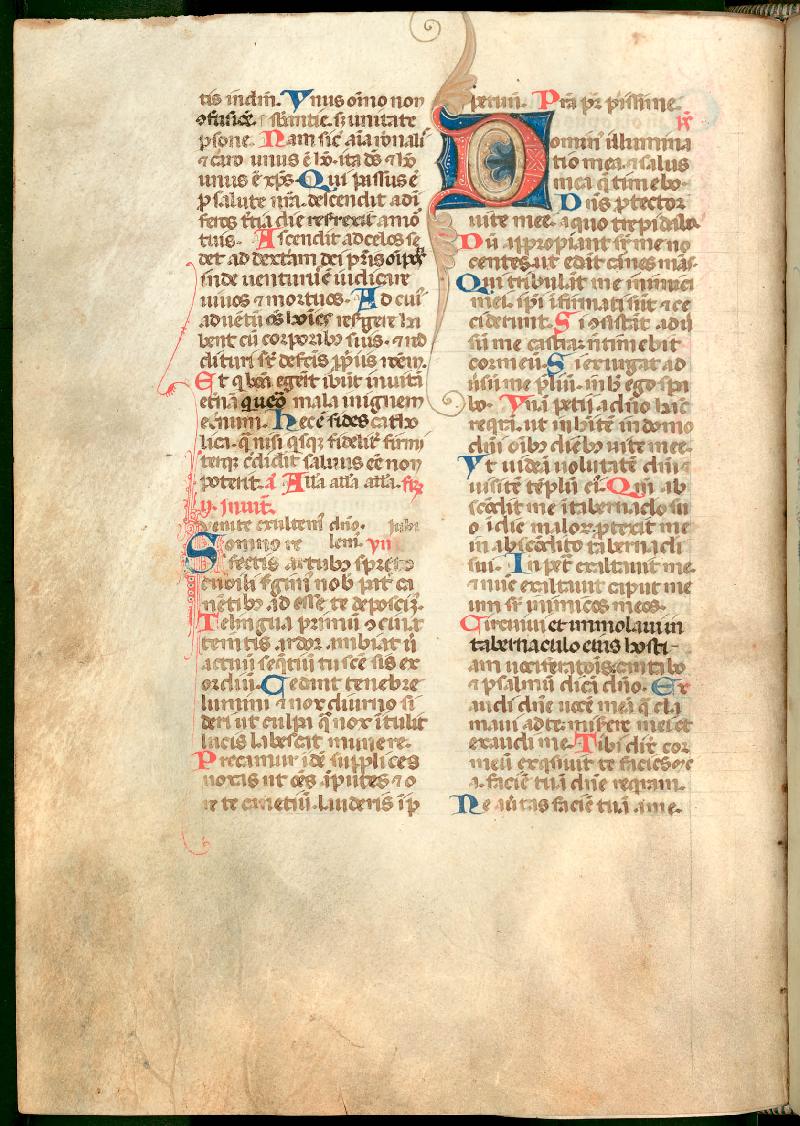 tis in dm̄. Vnus oīno non
ↄfusiōe sbāntie. sꝫ unitate
ꝑsone. Nam sic̄ aīa rōnalˀ
⁊ caro unus ē hō. ita dš ⁊ hō
unus ē xp̄s. Qui passus ē
ꝓ salute nr̄a. descendit ad ī
feros t̄tia die resrexit a mo
tuis. Ascendit ad celos se
det ad dextam dei pr̄is oīpōt
inde uenturꝰ ē iudicare
uiuos ⁊ mortuos. Ad cuiꝰ
aduētū oēs hoīes resꝰgere ha
bent cū corporibꝫ suis. ⁊
dituri st̄ de fc̄is ꝓpiis rōem.
Et q̄ bona egeīt ibūt ī uitā
et̄nā. q̄ ueo mala in ignem
et̄num. Hec ē fides catho
lica. q̄ nisi qsqꝫ fidelit̄ firmi
terqꝫ c̄didit saluus eē non
potit. ā Alla alla alla. fr̄
ij. Inuit.
Venite exultem dn̄o. Iubi
Somno re lem. yn
fectis artubꝫ spreto
cubili sꝰgimꝰ nob̄ pat̄ ca
nētibꝫ ad esse te deposcimꝰ.
Te lingua primū ↄcinat
te mtis ardor ambiat ut
actuū seq̄tiū tu scē sis ex
ordiū. Cedant tenebre
lumini ⁊ nox diurno si
deri ut culpa q̄ nox ītulit
lucis labescat munere.
Precamur idē supplices
noxas ut oēs āputes ⁊ o
re te canētiū lauderis īp
petuū. Pr̄a pr̄ piissime.
Dominꝰ illumina
tio mea. ⁊ salus
mea q̄ timebo.
Dn̄s ꝓtector
uite mee. a quo trepidabo.
Dū appropiant sꝑ me no
centes. ut edāt carnes meas.
Qui tribulāt me inimici
mei. ipi īfirmati sūt ⁊ ce
ciderunt. Si ↄsistāt adū
sū me castra. n̄ timebit
cor meū. Si exurgat ad
usū me ꝓliū. in h̄ ego spa
bo. Vnā petii a dn̄o hāc
requirā. ut inhītē in domo
dn̄i oībꝫ diebꝫ uite mee.
Vt uideā uoluntatē dn̄i ⁊
uisitē tēplū ei. Qm̄ ab
scōdit me ī tabernaclo su
o ī die malor. ꝓtexit me
in abscōdito tabernacli
sui. In pet̄ exaltauit me.
⁊ nūc exaltauit caput me
um sꝑ inimicos meos.
Circuiui et immolaui in
tabernaculo eius hosti
am uociferatōis. cantabo
⁊ psalmū dicā dn̄o. Ex
audi dn̄e uocē meā q̄ cla
maui ad te. misere mei et
exaudi me. Tibi dix̄ cor
meū exqsiuit te facies mea
faciē tuā dn̄e requiram.
Ne auertas faciē tuā a me.